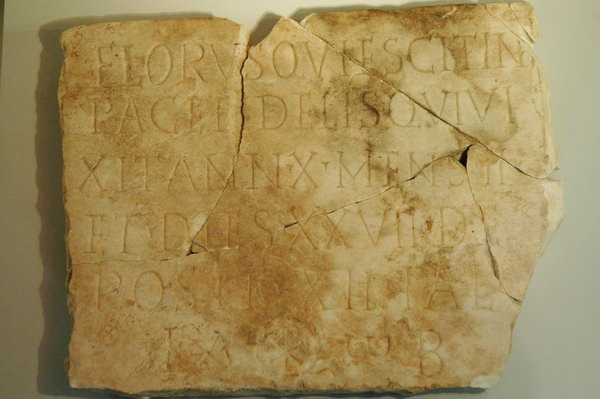 FLORVS QVIESCIT IN
PACE FIDELIS QVI VI
XIT ANN X · MENS
ET DIES XXVII DE
POSIT XII KAL